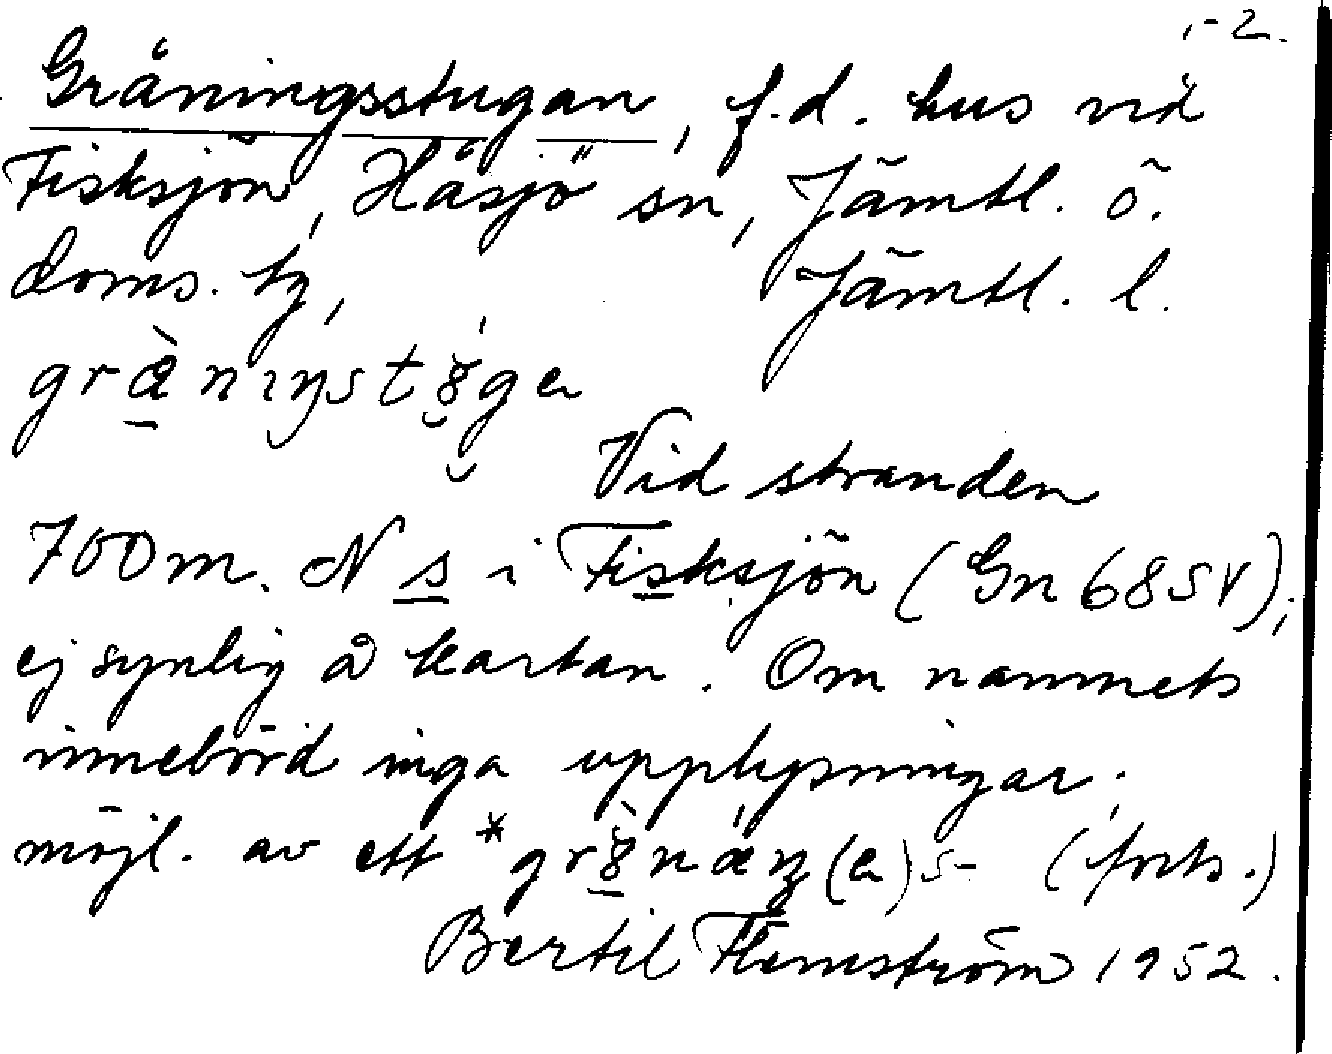 1-2.
Gråningsstugan, f.d. hus vid
Fisksjön, Håsjö sn, Jämtl. ö.
doms. tg, Jämtl. l.
Vid stranden
700 m. N s i Fisksjön (Gn 68 SV);
ej synlig å kartan. Om namnets
innebörd inga upplysningar;
möjl. av ett (forts.)
Bertil Flemström 1952.